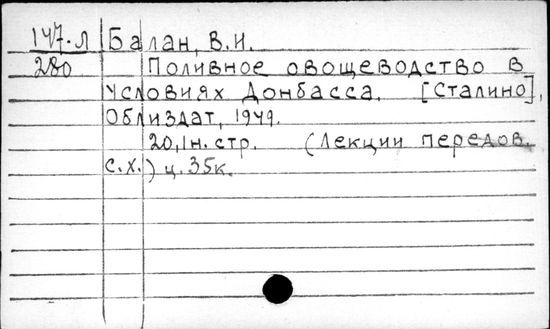 147-Л Балан, В.И.
280 Поливное овощеводство в
условиях Донбасса. [Сталино],
Облиздат, 1949.
20,1н.стр. (Лекции передов.
с.х.) ц. 35к.